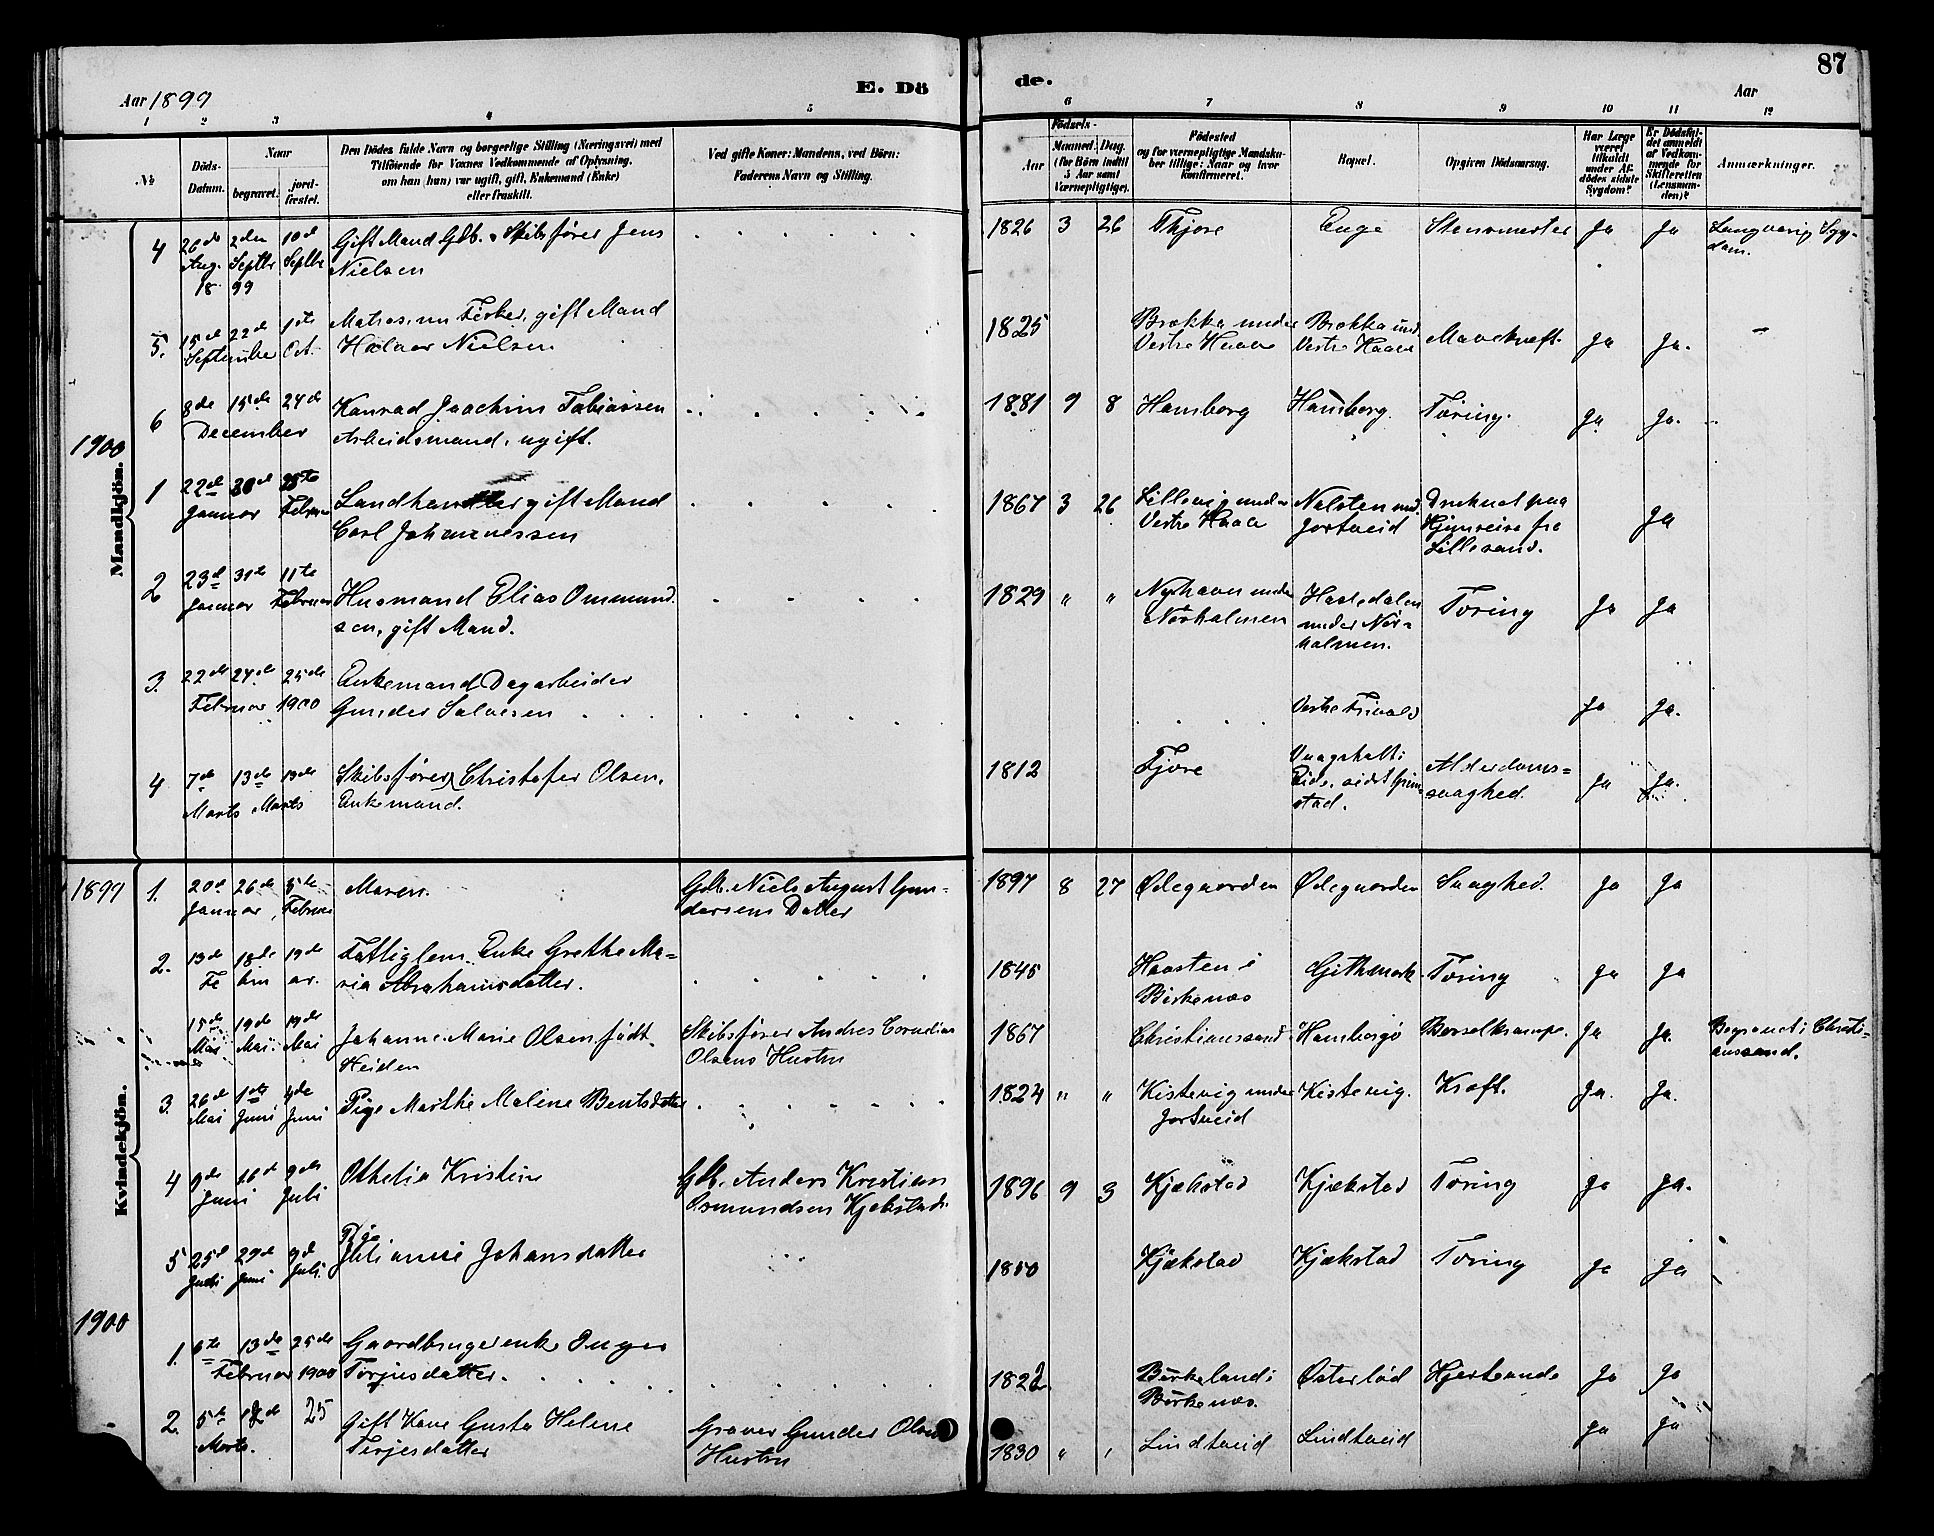 87
E. Dö
de.
Aar 1899
Aar
1 2 3 4 5 6 7 8 9 10 11 12
No
Döds-
Datum.
Naar
begravet.
jord-
fæstet.
Den Dödes fulde Navn og borgerlige Stilling (Næringsvei) med
Tilföiende for Voxnes Vedkommende af Oplysning,
om han (hun) var ugift, gift, Enkemand (Enke)
eller fraskilt.
Ved gifte Koner: Mandens, ved Börn:
Faderens Navn og Stilling.
Födsels-
Aar
Maaned. Dag.
(for Börn indtil
5 Aar samt
Værnepligtige).
Födested
og for værnepligtige Mandskaber
tillige: Naar og hvor
konfirmeret.
Bopæl.
Opgiven Dödsaarsag.
Har Læge
været
tilkaldt
under Af-
dödes sidste
Sygdom?
Er Dödsfal-
det anmeldt
af Vedkom-
mende for
Skifteretten
(Lensman-
den)?
Anmærkninger.
Mandkjön.
4 26de Aug. 2den Septbr 10de Septbr
18 99
Gift Mand Gdb. Skibsfører Jens
Nielsen
1826 3 26 Tkjore Enge Stensmerter Ja Ja Langvarig Syg-
dom.
5. 15de 22de September 1ste Oct.
Fisker, gift Mand
Halvor Nielsen
1825 Brække under
Vestre Haave
Brække und.
Vestre Haave
Mavekræft. Ja Ja.
6 8de 15de December 24de
Konrad Joachim Tobiassen
Arbeidsmand, ugift.
1881 9 8 Homborg Homborg. Tæring. Ja Ja.
1900
1 22de Januar 30de Februar
Landhandler gift Mand
Carl Johannessen
1867 3 26 Lillevig under
Vestre Haave
und.
Jortveid
Druknet paa
Hjemreise fra
Lillesand.
Ja
2 23de Januar 31te 11te Februar
Husmand Elias Ommund-
sen, gift Mand.
1829 " " Nyhavn under
Nørholmen
under Nør-
holmen.
Tæring Ja Ja
3. 22de 24de Februar 25de 1900
Enkemand Dagarbeider
Gunder Salvesen
Vestre Ja Ja.
4 7de Marts 13de Marts 19de
Skibsfører Christofer Olsen,
Enkemand.
1812 Fjære
Vaagsholt i
Eide, sidst Grim-
stad.
Alderdoms-
svaghed.
Ja Ja.
Kvindekjön.
1899
1. 20de Januar 26de 5te Februar
Maren.
Gdb. Niels August Gun-
dersens Datter
1897 8 27 Ødegaarden Ødegaarden Svaghed. Ja Ja
2. 13de 18de 19de
Fe bru ar.
Fattiglem. Enke Grethe Ma-
ria Abrahamsdatter.
1845 Haasten i
Birkenæs
Tæring Ja Ja
15de Mai 19de Mai 19de Mai
Johanne Marie Olsen født
Heiden
Skibsfører Andres Cornelius
Olsens Hustru
1867 Christianssand Homborgø Barselkrampe. Ja Ja. Begravet i Christi-
anssand.
3. 26de Mai 1ste Juni 4de Juni
Pige Marthe Malene Bentsdatter
1824 " " Kistevig under
Jortveid
Kistevig. Kræft. Ja. Ja.
4 9de 16de Juni 9de Juli
Othelia Kristine
Gdb. Anders Kristian
Osmundsen Kjækstads.
1896 9 3 Kjækstad Kjækstad Tæring Ja Ja.
5 25de 29de Juni 9de Juli.
Pige
Juliane Johansdatter
1850 Kjækstad Kjækstad Tæring Ja Ja
1900
1. 6te 13de Februar 25de 1900
Gaardbrugerenke Inger
Torjusdatter.
1822 Birkeland i
Birkenæs.
Østerlød Hjerteonde Ja Ja
2. 5te Marts. 12de 25
Gift Kone Gusta Helene
Terjesdatter
Graver Gunder Olsens
Hustru
1830 " " Lindtveid Lindtveid Ja Ja